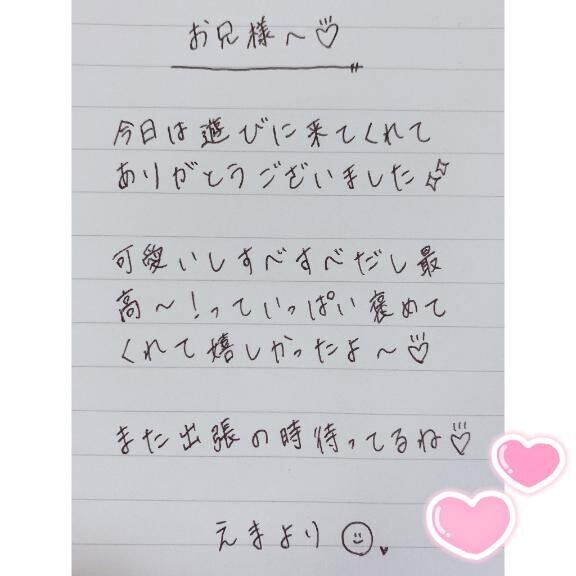 お兄様〜♡
今日は遊びに来てくれて
ありがとうございました✨
可愛いしすべすべだし最
高〜!っていっぱい褒めて
くれて嬉しかったよ〜♡
また出張の時待ってるね♡
えまより